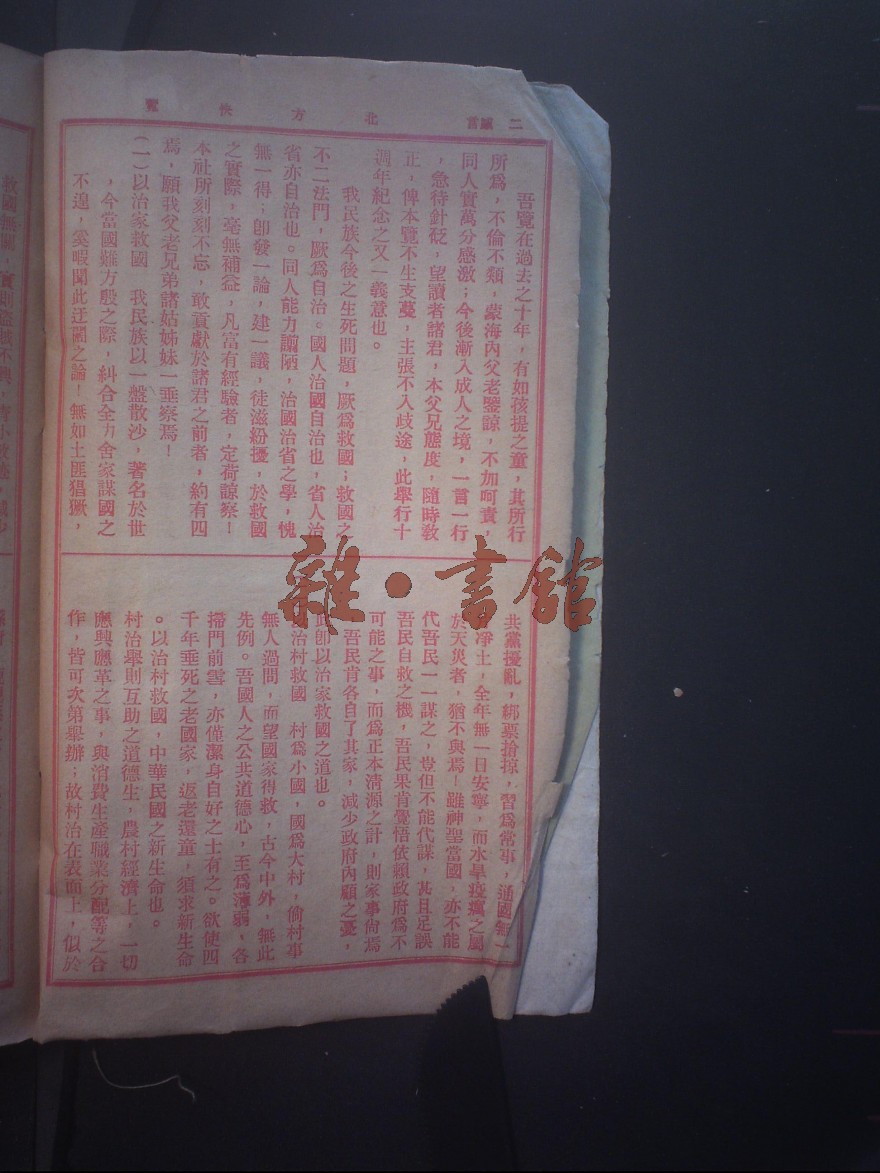 二 緘言 北方快覽
吾覽在過去之十年，有如孩提之童，其所行
所爲，不倫不類，蒙海內父老鑒諒，不加呵責，
同人實萬分感激；今後漸入成人之境，一言一行
，急待針砭，望讀者諸君，本父兄態度，隨時敎
正，俾本覽不生支蔓，主張不入歧途，此舉行十
週年紀念之又一義意也。
我民族今後之生死問題，厥爲救國；救國之
不二法門，厥爲自治。國人治國自治也，省人治
省亦自治也。同人能力譾陋，治國治省之學，愧
無一得；卽發一論，建一議，徒滋紛擾，於救國
之實際，毫無補益，凡富有經驗者，定荷諒察！
本社所刻刻不忘，敢貢獻於諸君之前者，約有四
焉，願我父老兄弟諸姑姊妹一垂察焉！
（一）以治家救國 我民族以一盤散沙，著名於世
，今當國難方殷之際，糾合全力舍家謀國之
不遑，奚暇聞此迂闊之論！無如土匪猖獗，
共黨擾亂，綁票搶掠，習爲常事，通國無一
淨土，全年無一日安寧，而水旱疫癘之屬
於天災者，猶不與焉！雖神聖當國，亦不能
代吾民一一謀之，豈但不能代謀，甚且足誤
吾民自救之機，吾民果肯覺悟依賴政府爲不
可能之事，而爲正本清源之計，則家事尙焉
吾民肯各自了其家，減少政府內顧之憂，
卽以治家救國之道也。
治村救國 村爲小國，國爲大村，倘村事
無人過問，而望國家得救，古今中外，無此
先例。吾國人之公共道德心，至爲薄弱，各
掃門前雪，亦僅潔身自好之士有之。欲使四
千年垂死之老國家，返老還童，須求新生命
。以治村救國，中華民國之新生命也。
村治舉則互助之道德生，農村經濟上，一切
應興應革之事，與消費生產職業分配等之合
作，皆可次第舉辦；故村治在表面上，似於
雜·書館